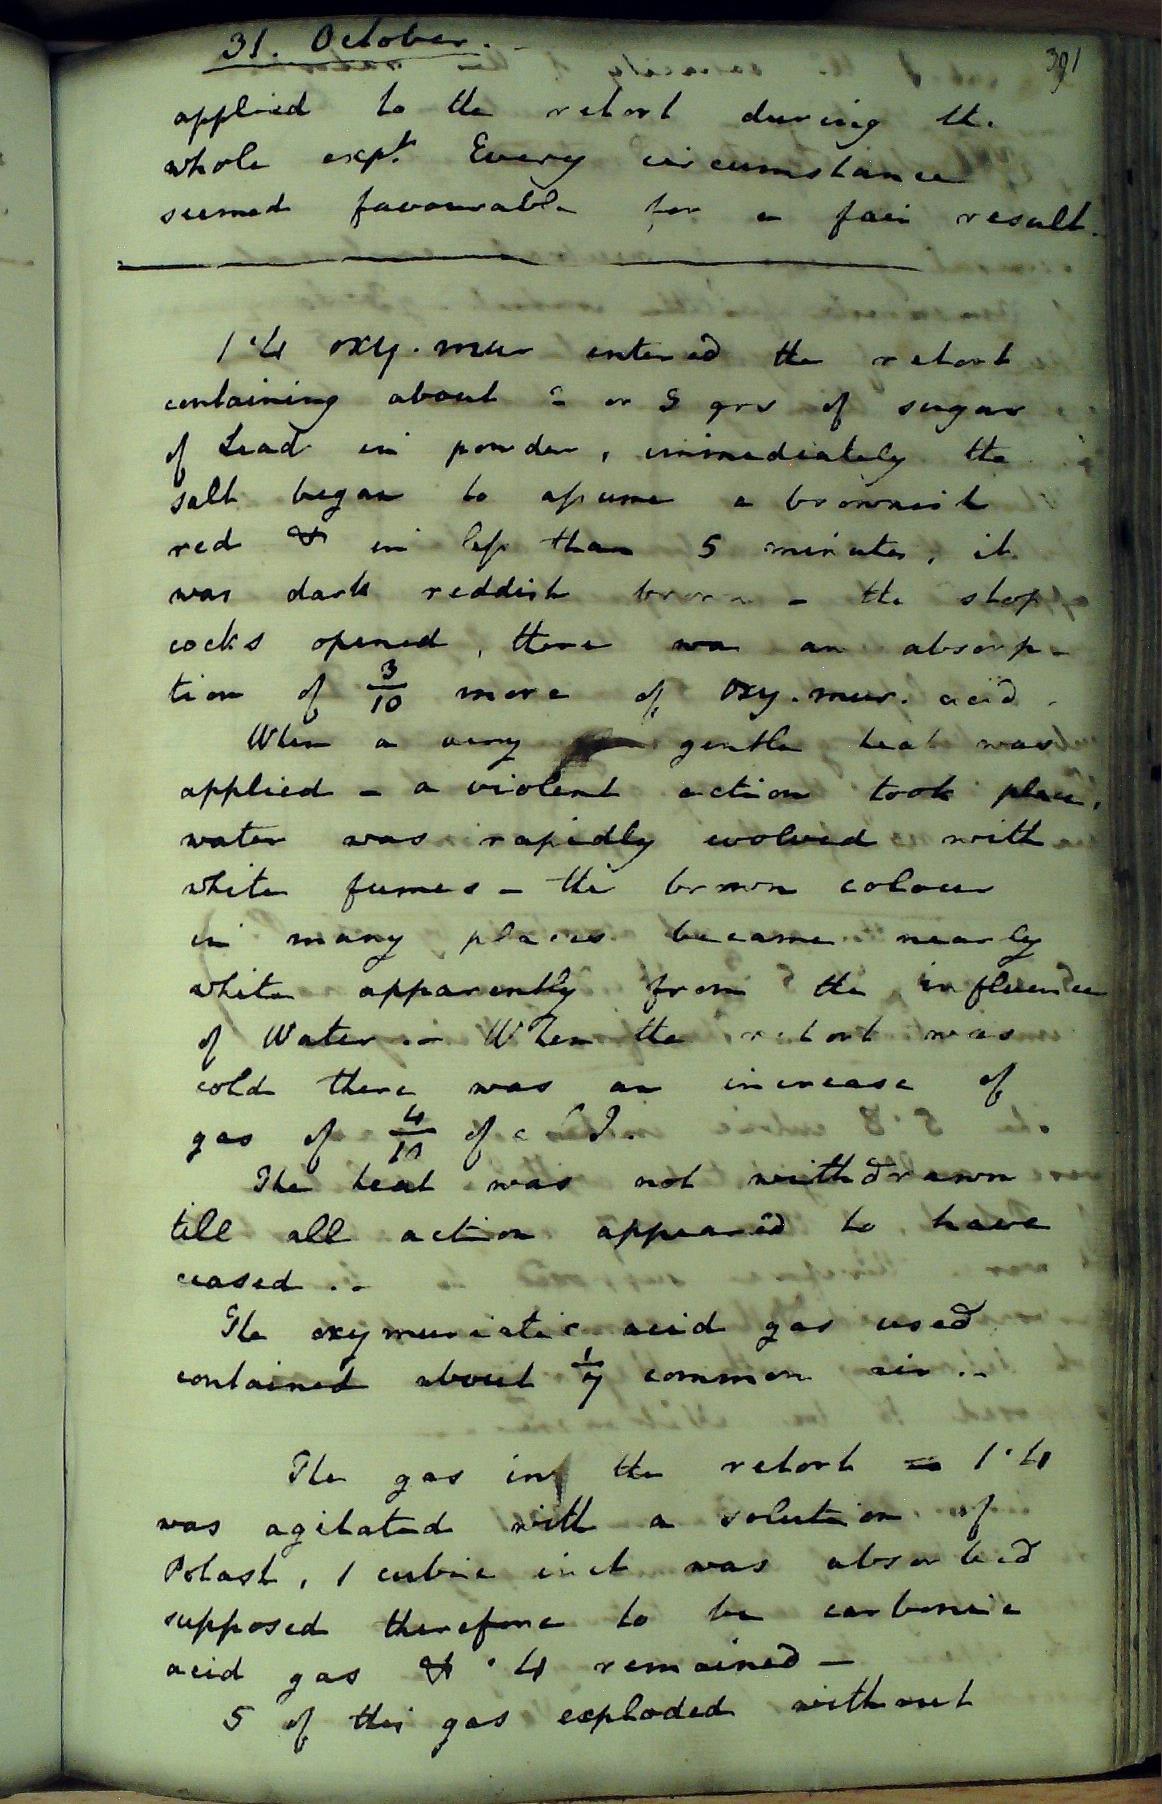 31. October.
391
applied to the retort during the
whole expt. Every circumstance
seemed favourable for a fair result.
1·4 oxy. mur entered the retort
containing about 2 or 3 grs of sugar
of Lead in powder, immediately the
salt began to assume a brownish
red & in less than 5 minutes, it
was dark reddish brown - the stop
cocks opened, there was an absorp-
tion of 3/10 more of oxy. mur. acid.
When a very gentle heat was
applied - a violent action took place,
water was rapidly evolved with
white fumes - the brown colour
in many places became nearly
white apparently from the influence
of Water. - When the retort was
cold there was an increase of
gas of 4/10 of a C I.
The heat was not withdrawn
till all action appeared to have
ceased. -
The oxymuriatic acid gas used
contained about 1/7 common air. -
The gas in the retort = 1·4
was agitated with a solution of
Potash, 1 cubic inch was absorbed
supposed therefore to be carbonic
acid gas & ·4 remained -
5 of this gas exploded without